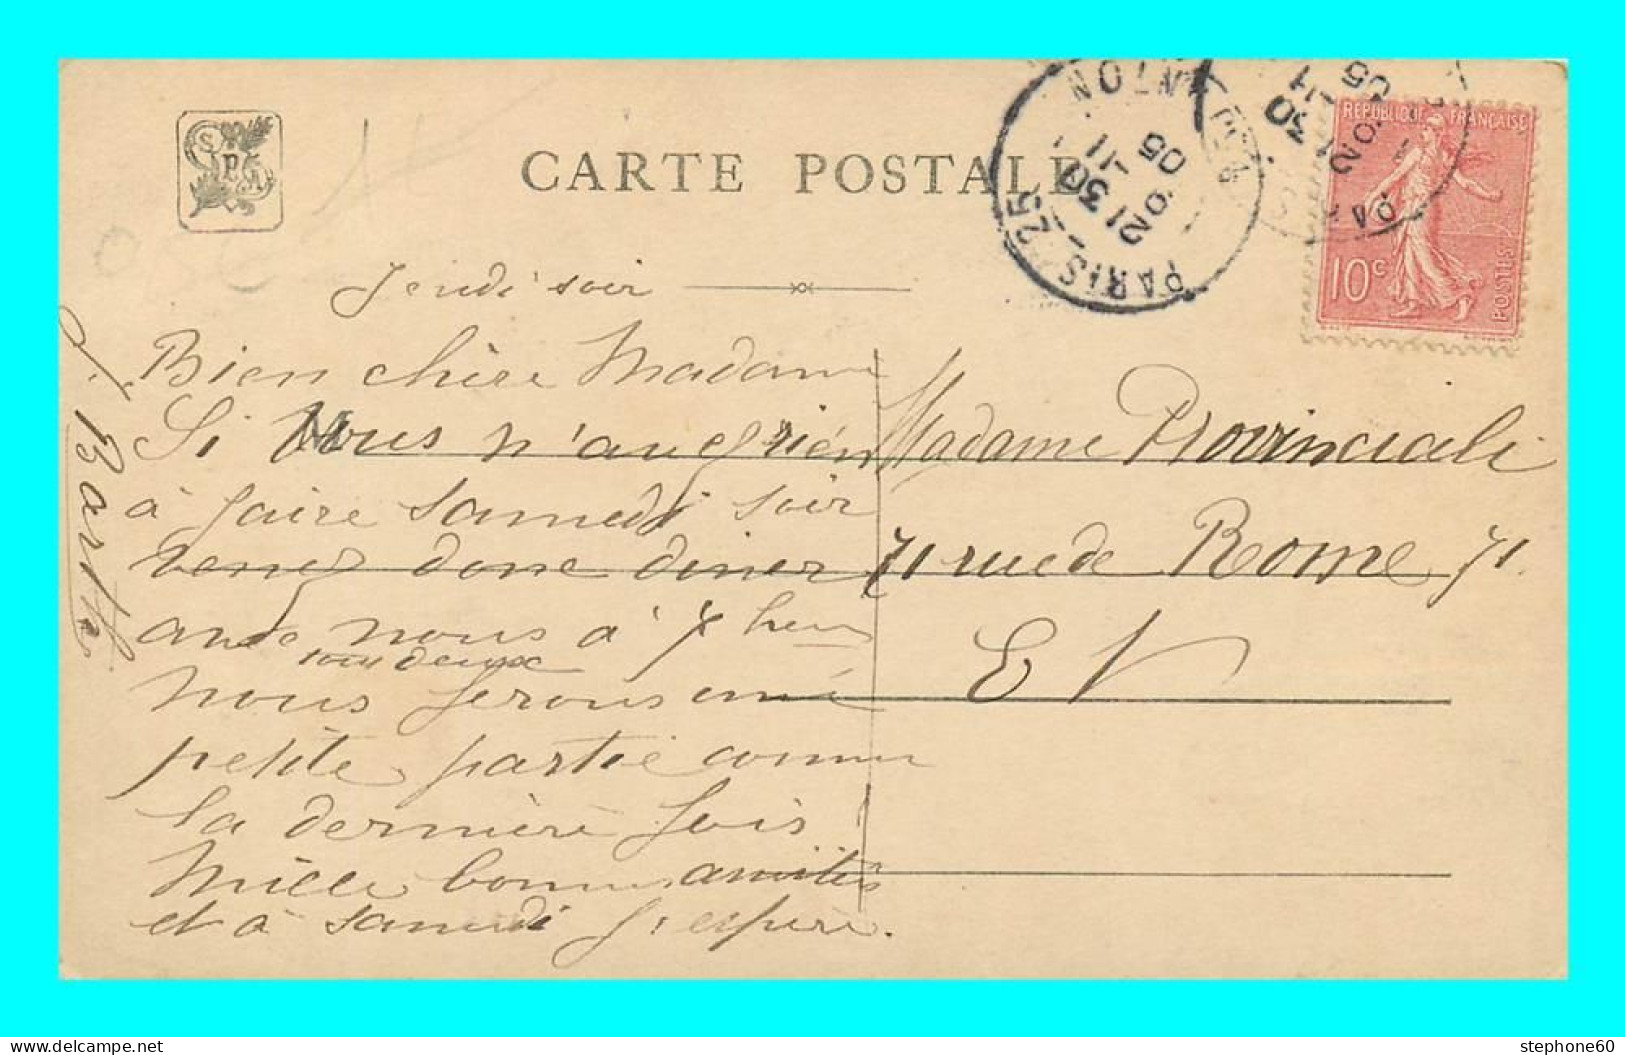 CARTE POSTALE
S P A
PARIS 25
21 30
11
05
PARIS
RÉPUBLIQUE FRANÇAISE
10c
POSTES
Jeudi soir
Bien chère Madame
Si Vous n'avez rien
à faire samedi soir
venez donc diner
avec nous à 7 heures
tous deux
nous ferons une
petite partie comme
la dernière fois
Mille bonnes amitiés
et à samedi j'espère.
J. Barth
Madame Provinciali
71 rue de Rome 71.
E V
stephone60